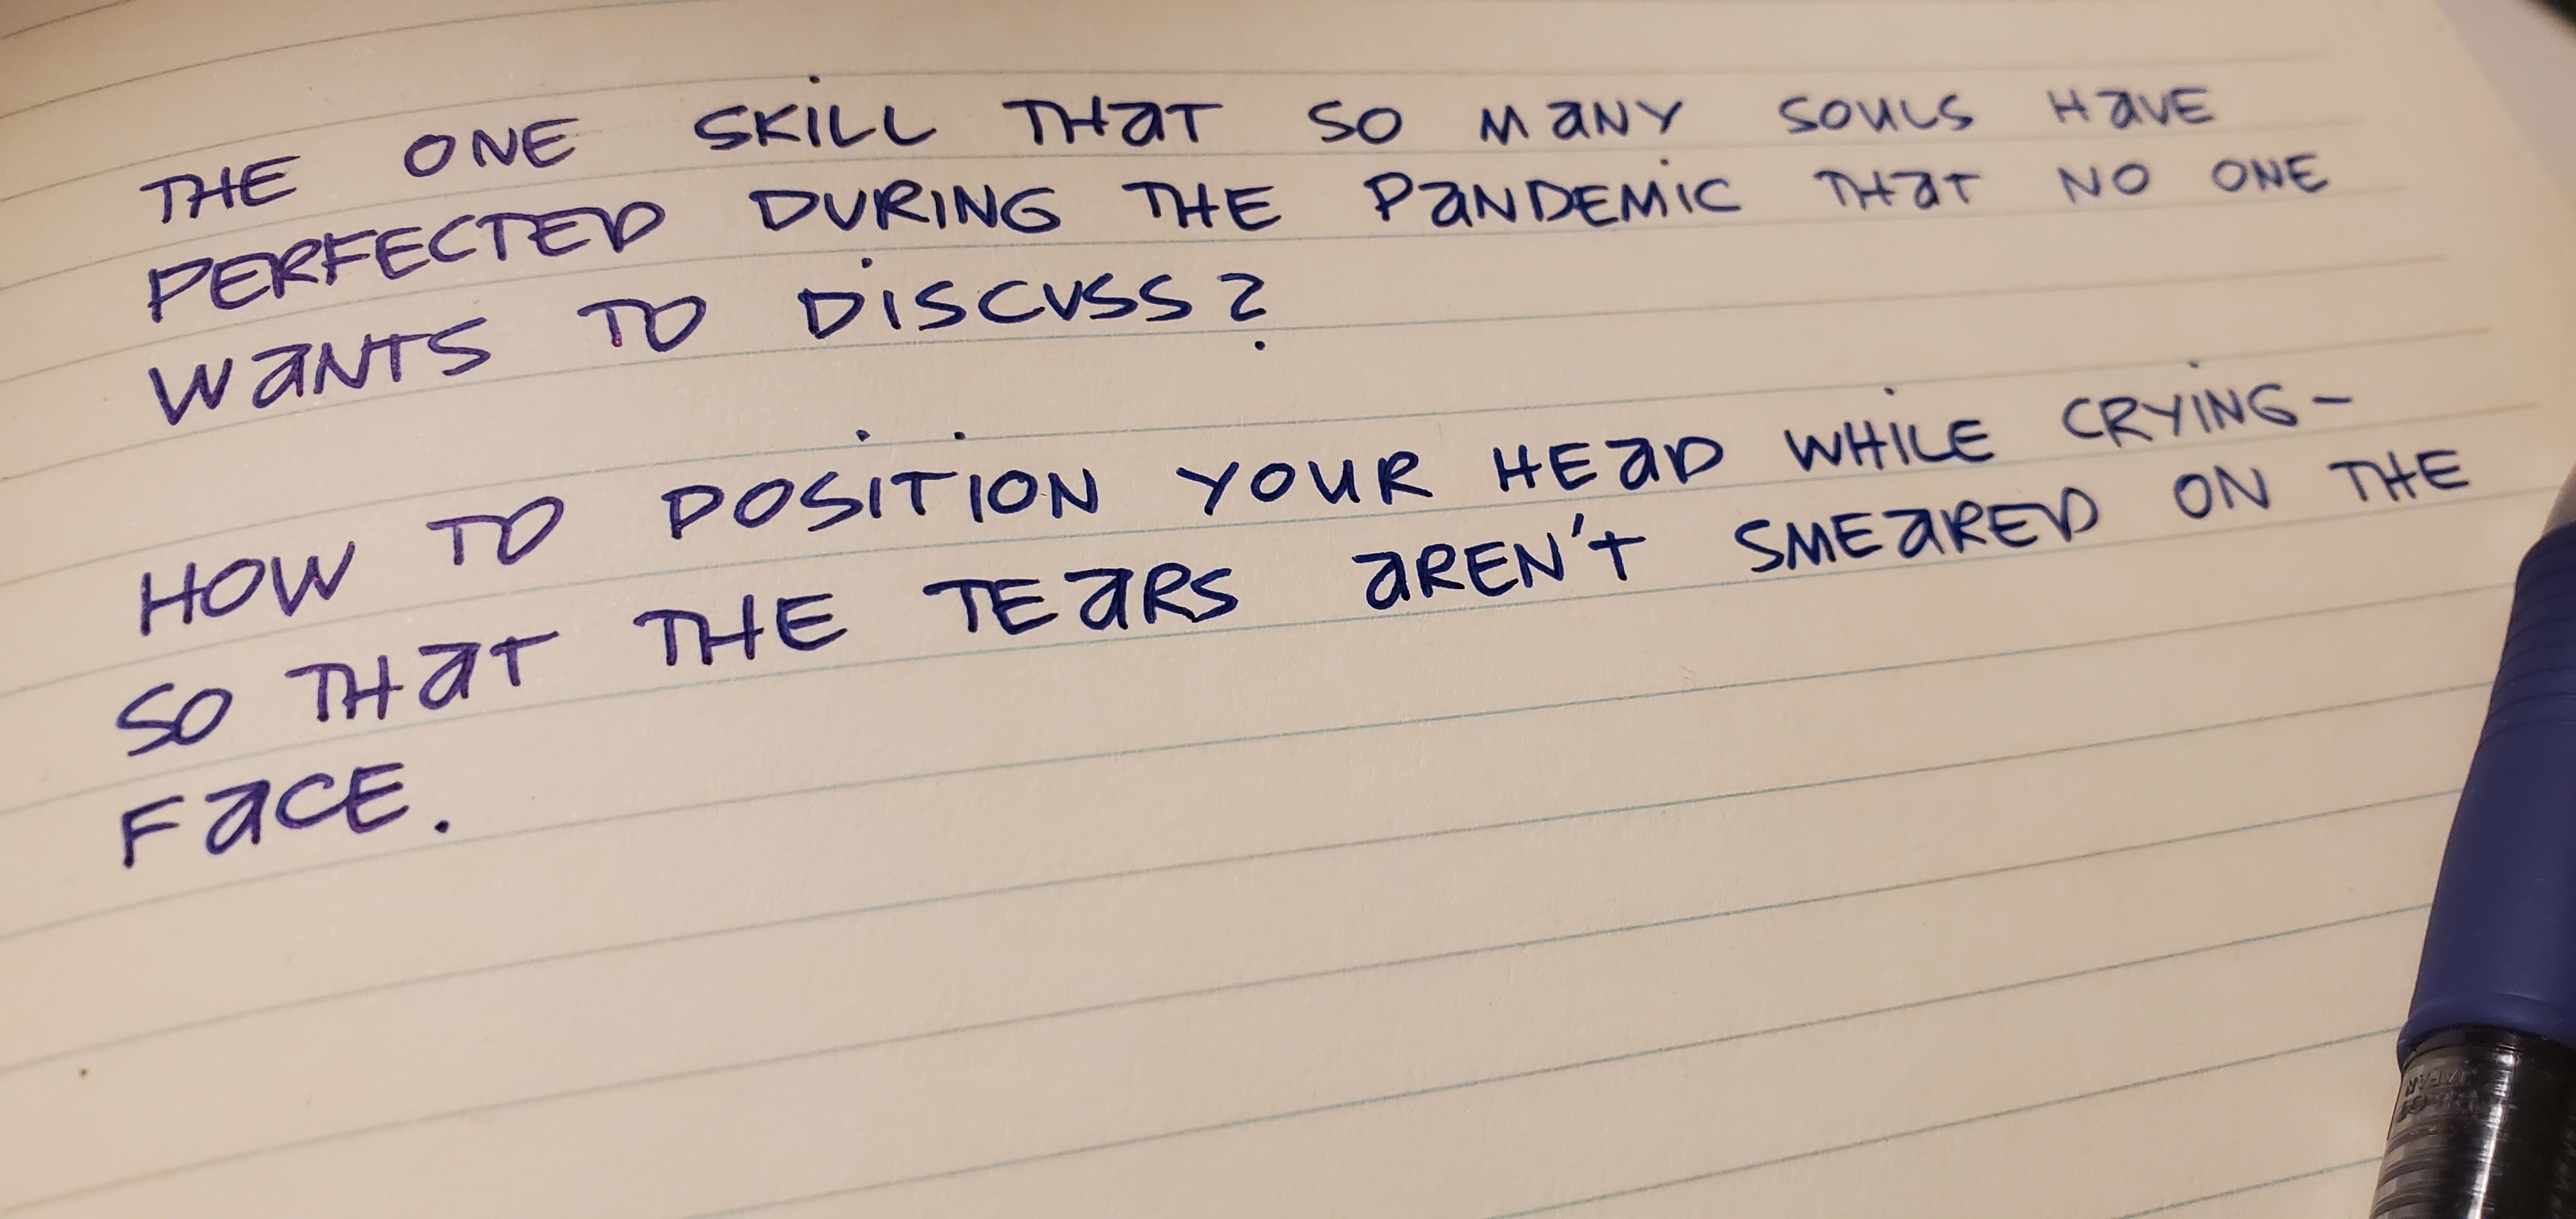 THE ONE SKiLL THaT SO MaNY SOULS HaVE
PERFECTED DURING THE PaNDEMiC THaT NO ONE
WaNTS TO DiSCUSS?
HOW TO POSiTiON YOUR HEaD WHiLE CRYiNG-
SO THaT THE TEaRS aREN'T SMEaRED ON THE
FaCE.
JAPAN